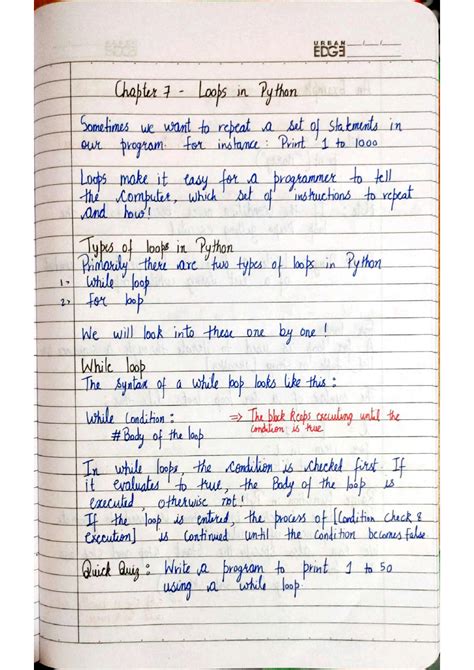 URBAN
EDGE
Chapter 7 - Loops in Python
Sometimes we want to repeat a set of statements in
our program. for instance: Print 1 to 1000
Loops make it easy for a programmer to tell
the computer, which set of instructions to repeat
and how!
Types of loops in Python
Primarily there are two types of loops in Python
1> While loop
2> for loop
We will look into these one by one!
While loop
The syntax of a while loop looks like this:
While condition: ⇒ The block keeps executing until the
condition is true
#Body of the loop
In while loops, the condition is checked first. If
it evaluates to true, the Body of the loop is
executed, otherwise not!
If the loop is entered, the process of [Condition check &
execution] is continued until the condition becomes false
Quick Quiz: Write a program to print 1 to 50
using a while loop